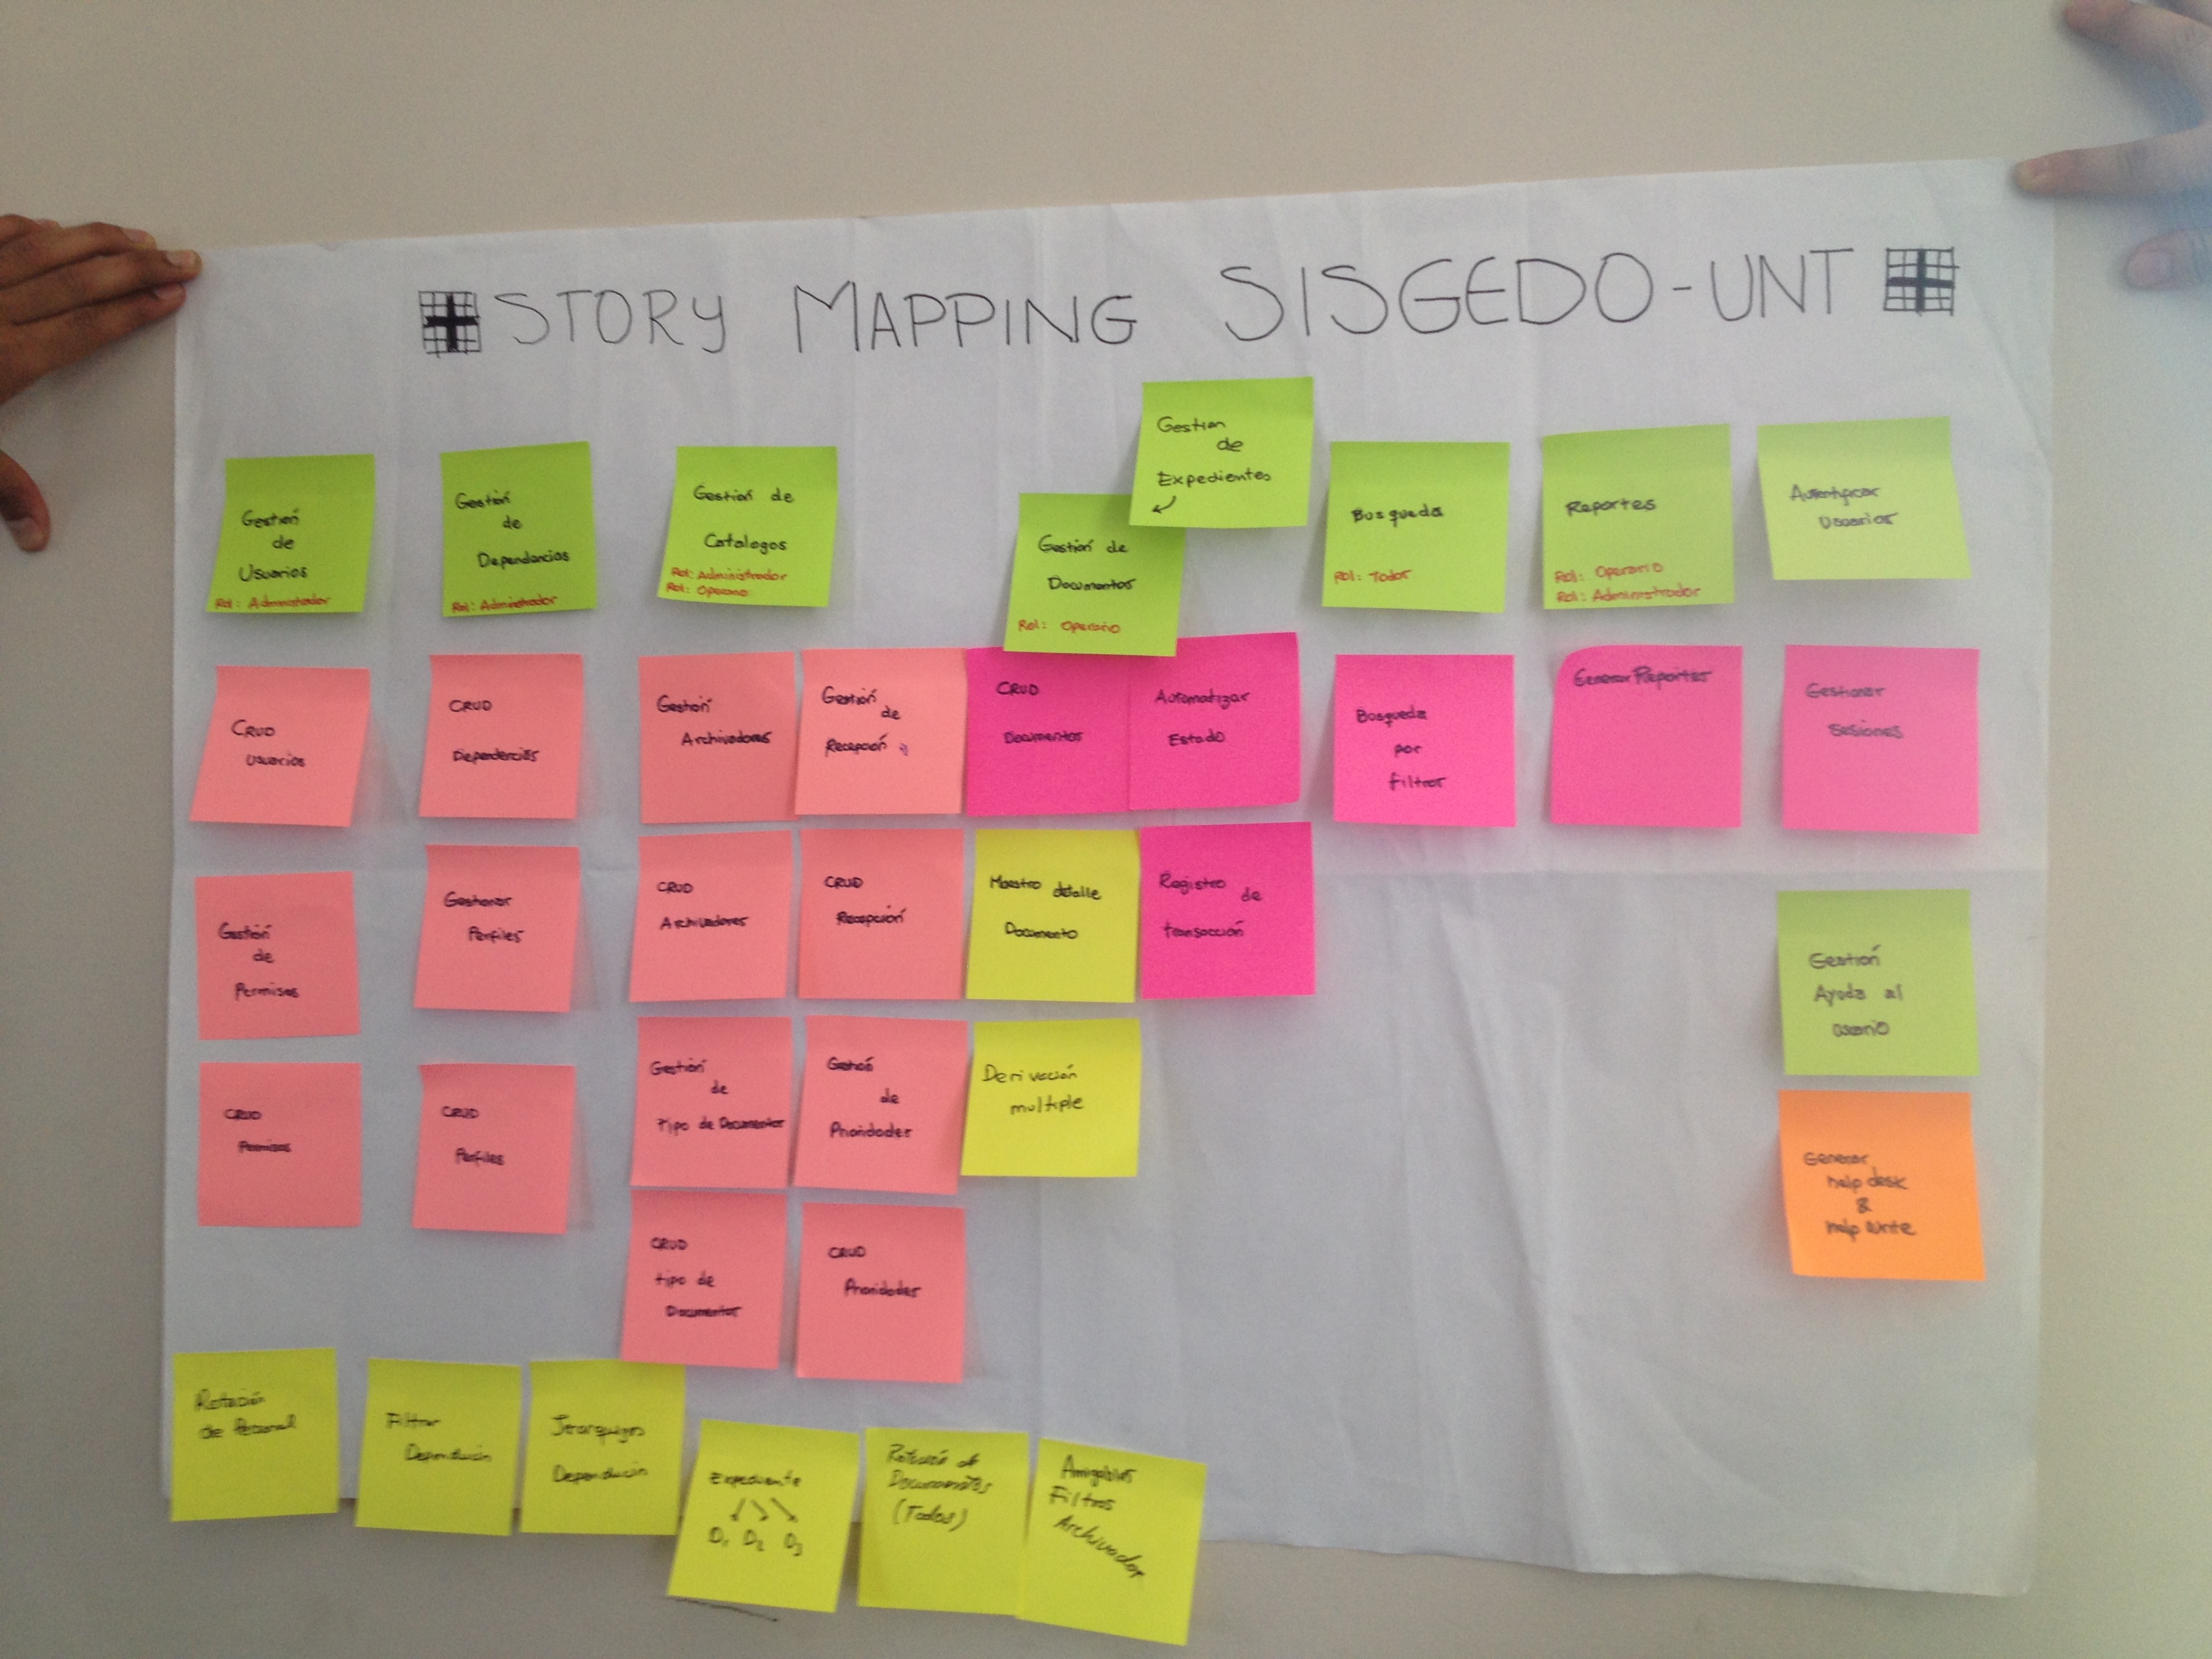 STORY MAPPING SISGEDO-UNT
Gestión
de
Usuarios
Rol: Administrador
Gestión
de
Dependencias
Rol: Administrador
Gestión de
Catalogos
Rol: Administrador
Rol: Operario
Gestion
de
Expedientes
Gestión de
Documentos
Rol: Operario
Busqueda
Rol: Todos
Reportes
Rol: Operario
Rol: Administrador
Autentificar
Usuarios
CRUD
Usuarios
CRUD
Dependencias
Gestión
Archivadores
Gestión
de
Recepción
CRUD
Documentos
Automatizar
Estado
Busqueda
por
filtros
Generar Reportes
Gestionar
Sesiones
Gestión
de
Permisos
Gestionar
Perfiles
CRUD
Archivadores
CRUD
Recepción
Maestro detalle
Documento
Registro
de
transacción
Gestión
Ayuda al
usuario
CRUD
Permisos
CRUD
Perfiles
Gestión
de
Tipo de Documentos
de
Prioridades
Derivación
multiple
Generar
help desk
&
help
CRUD
tipo de
Documentos
CRUD
Prioridades
Rotación
de Personal
Filtrar
Dependencia
Dependencia
Expediente
D1 D2 D3
Documentos
(Todos)
Amigables
Filtros
Archivador